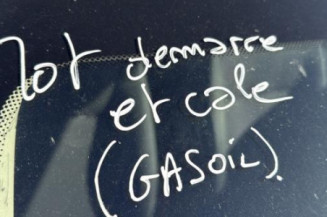 Mot demarre
et cale
(GASOIL).